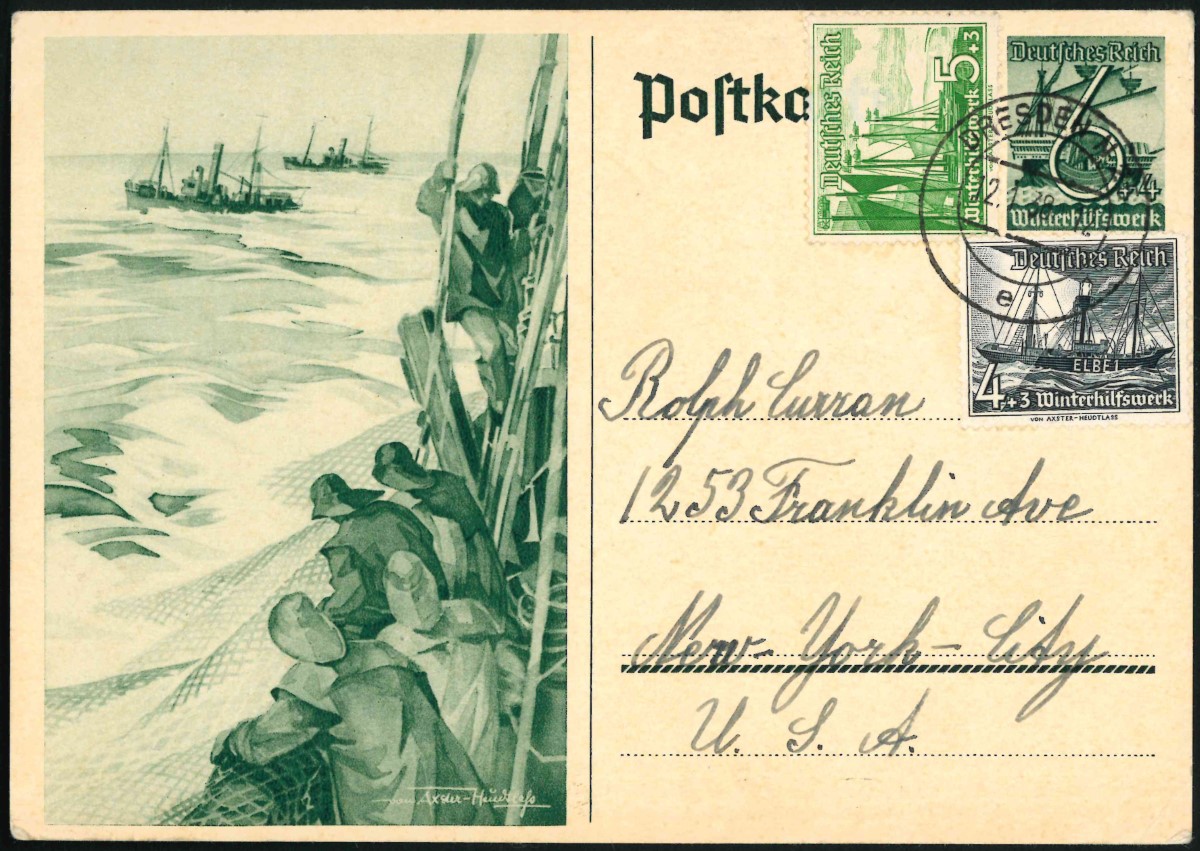 Postka
Deutsches Reich
5+3
Winterhilfswerk
Deutsches Reich
6+4
Winterhilfswerk
DRESDEN N
e
Deutsches Reich
ELBE 1
4+3 Winterhilfswerk
VON AXSTER-HEUDTLASS
Rolph Curran
1253 Franklin Ave
New-York-City
U. S. A.
von Axster-Heudtlaß